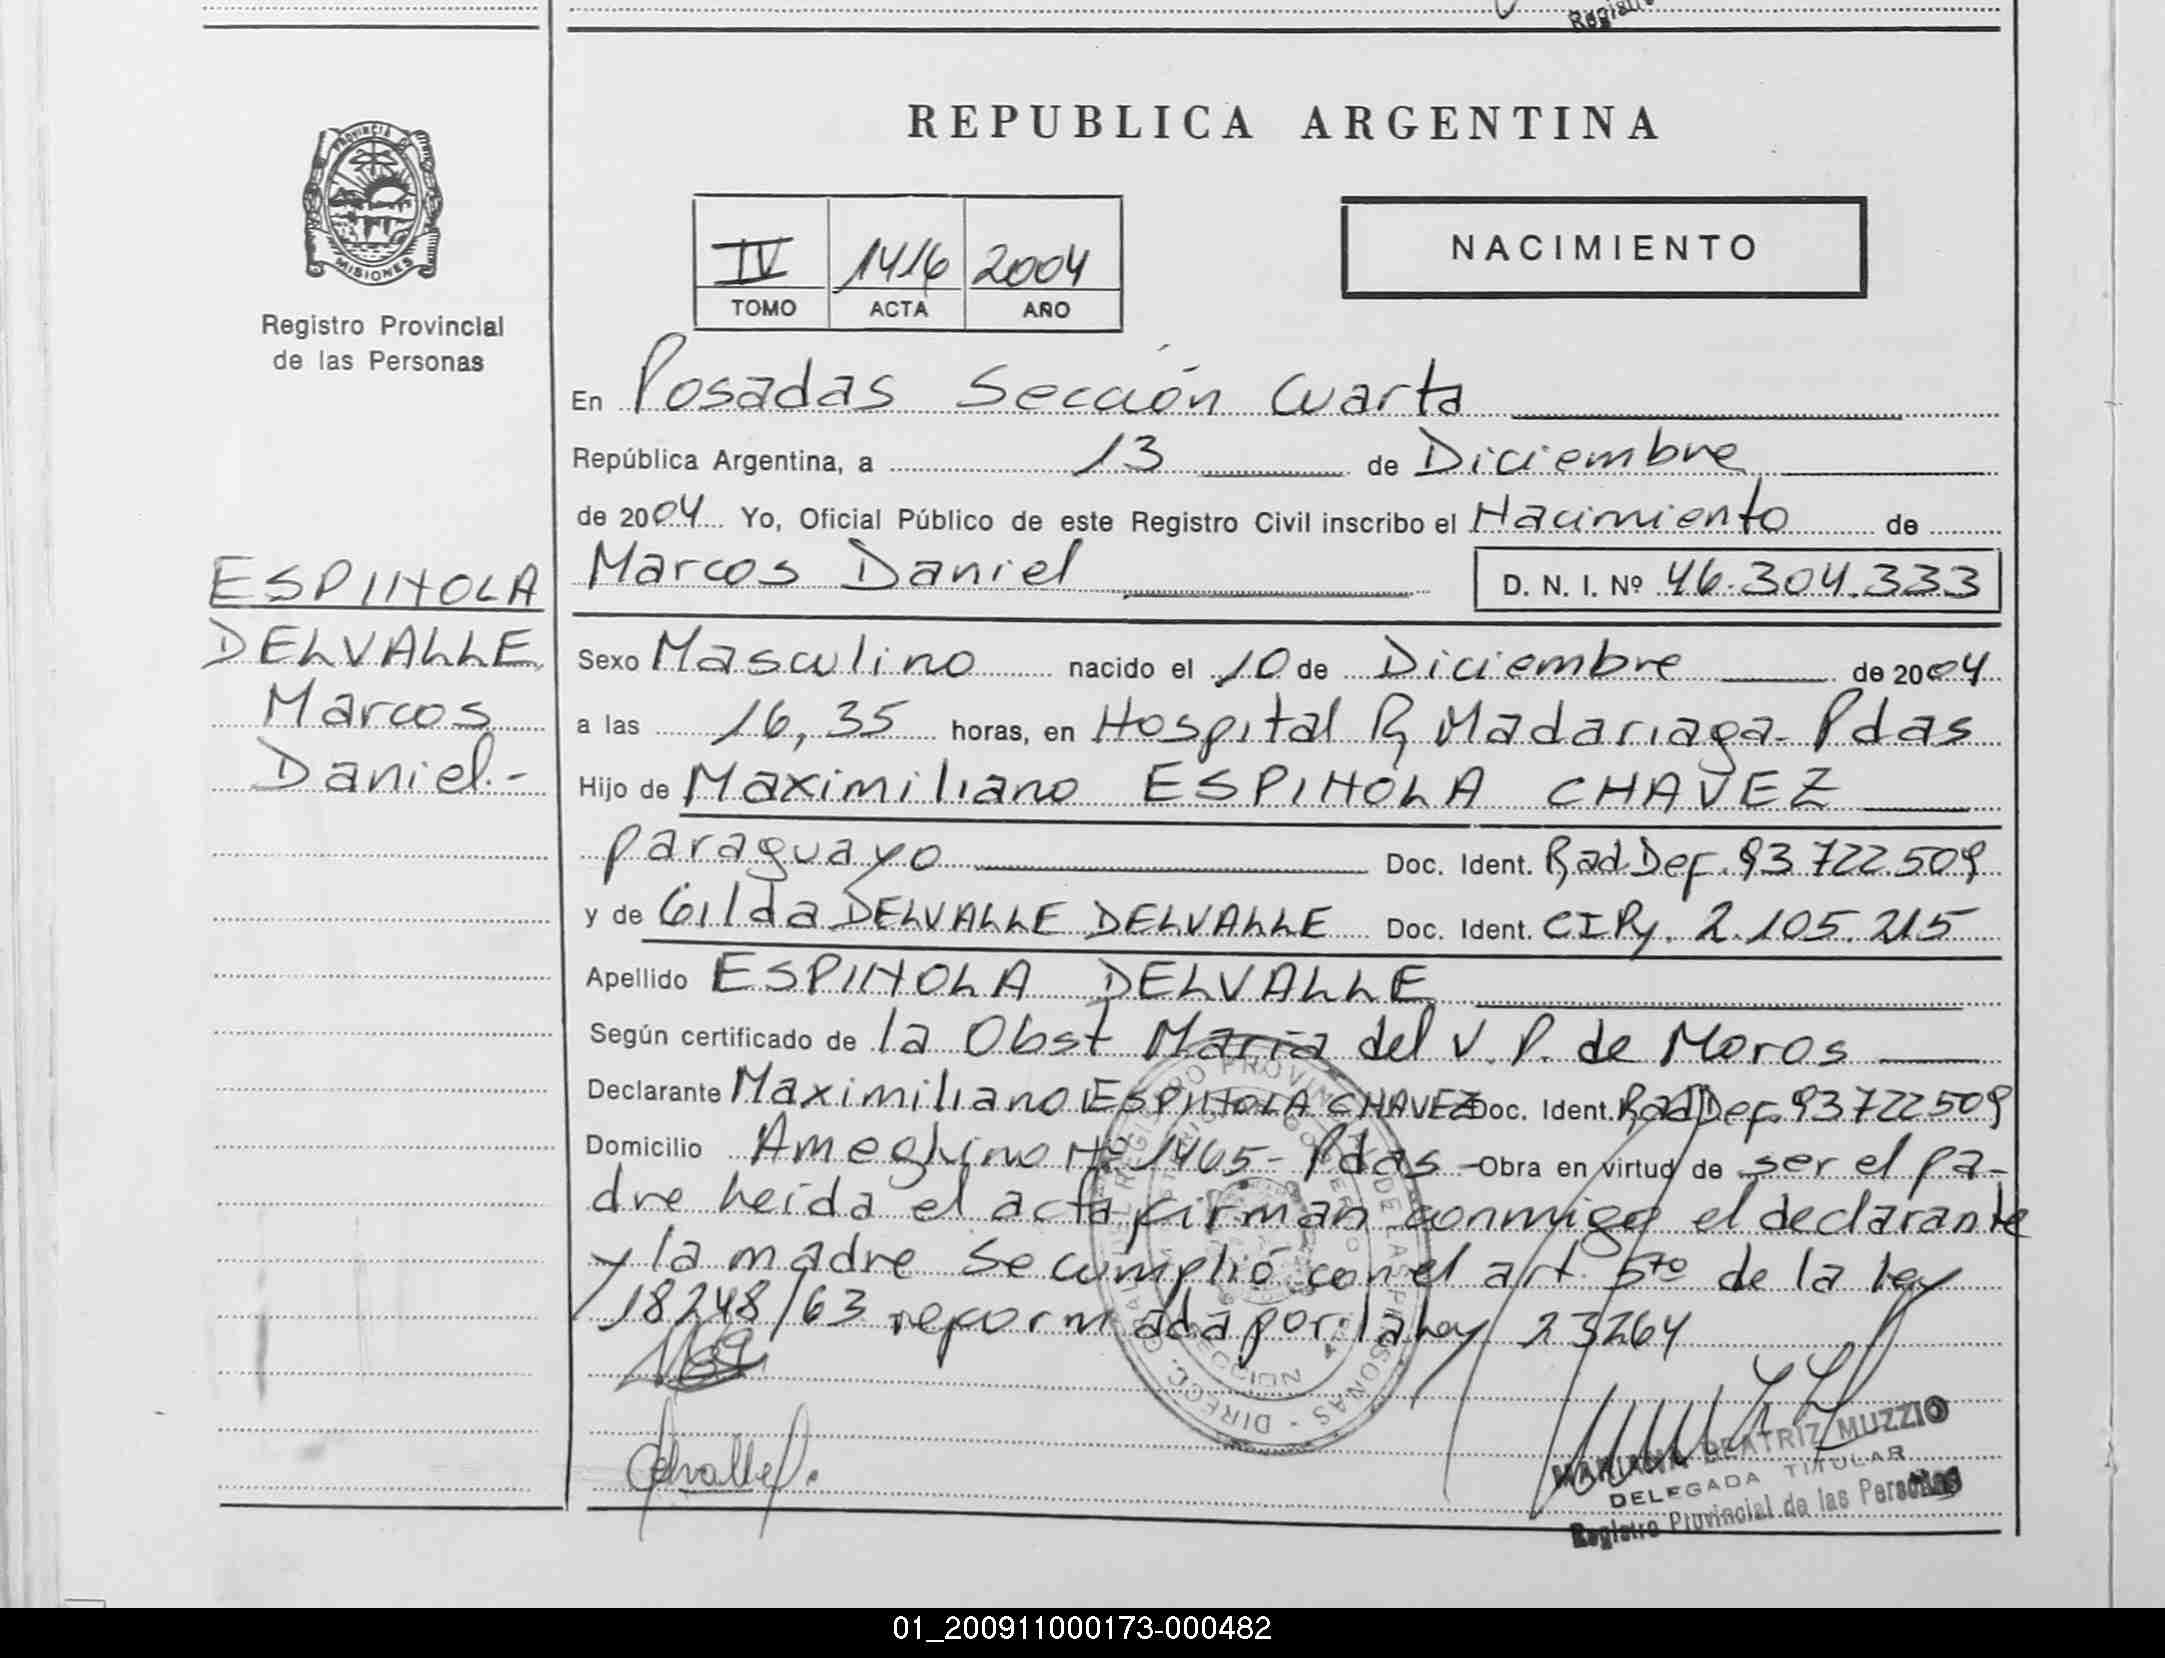 REPUBLICA ARGENTINA
PROVINCIA
MISIONES
Registro Provincial
de las Personas
IV 1416 2004
TOMO ACTA AÑO
NACIMIENTO
En Posadas Sección Cuarta
República Argentina, a 13 de Diciembre
de 2004 Yo, Oficial Público de este Registro Civil inscribo el Nacimiento de
Marcos Daniel D. N. I. Nº 46.304.333
ESPINOLA
DELVALLE
Marcos
Daniel.-
Sexo Masculino nacido el 10 de Diciembre de 2004
a las 16,35 horas, en Hospital R Madariaga- Pdas
Hijo de Maximiliano ESPINOLA CHAVEZ
paraguayo Doc. Ident. Rad Def. 93722509
y de Gilda DELVALLE DELVALLE Doc. Ident. CIPy. 2.105.215
Apellido ESPINOLA DELVALLE
Según certificado de la Obst María del V. P. de Moros
Declarante Maximiliano ESPINOLA CHAVEZ Doc. Ident. Rad Def. 93722509
Domicilio Ameghino Nº 1465- Pdas -Obra en virtud de ser el pa-
dre leída el acta firman conmigo el declarante
y la madre Se cumplió con el art. 5to de la ley
18248/63 reformada por la ley 23264
Delvalle
MARIANA BEATRIZ MUZZIO
DELEGADA TITULAR
Registro Provincial de las Personas
01_200911000173-000482